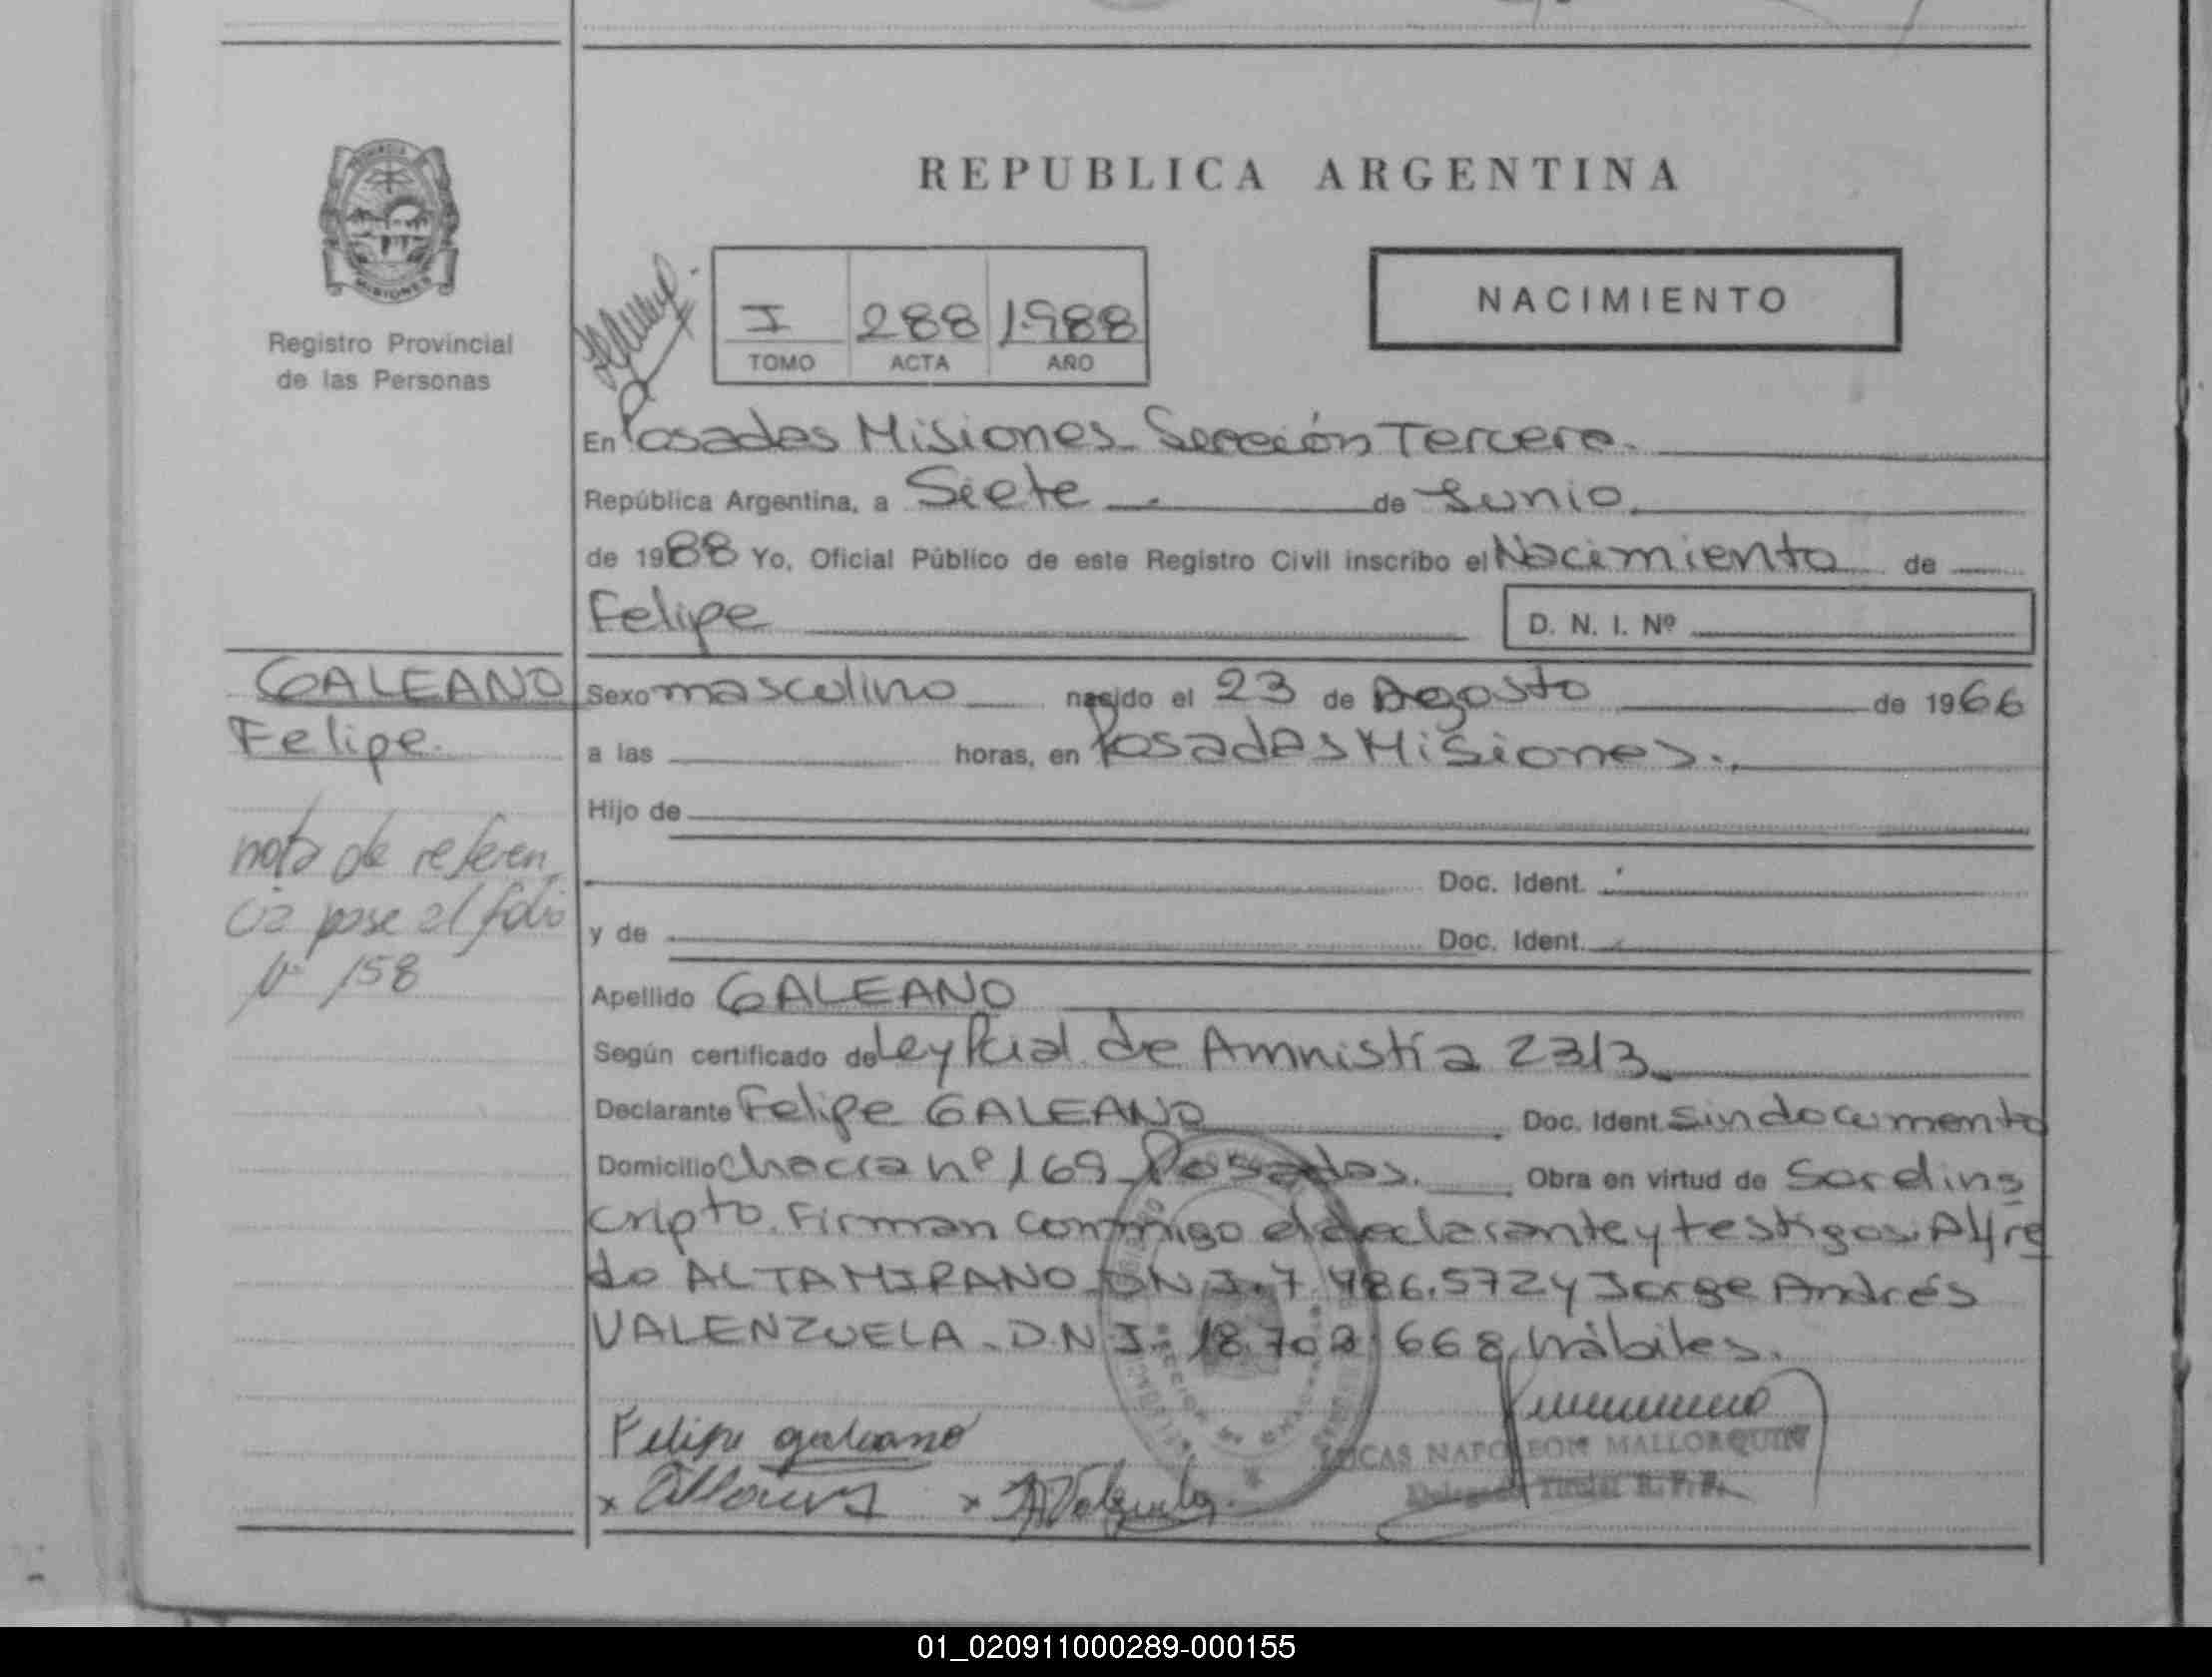 REPUBLICA ARGENTINA
PROVINCIA DE
MISIONES
Registro Provincial
de las Personas
I 288 1988
TOMO ACTA AÑO
NACIMIENTO
En Posadas Misiones Sección Tercera.
República Argentina, a Siete de Junio
de 1988 Yo, Oficial Público de este Registro Civil inscribo el Nacimiento de
Felipe D. N. I. Nº
GALEANO
Felipe.
nota de referen
cia pase al folio
Nº 158
Sexo masculino nacido el 23 de Agosto de 1966
a las horas, en Posadas Misiones.
Hijo de
Doc. Ident.
y de Doc. Ident.
Apellido GALEANO
Según certificado de Ley Pcial de Amnistía 2313
Declarante Felipe GALEANO Doc. Ident. sin documento
Domicilio Chacra nº 169 Posadas. Obra en virtud de Ser el ins
cripto. Firman conmigo el declarante y testigos Alfre
do ALTAMIRANO DNI. 7.486.572 y Jorge Andrés
VALENZUELA. D.N.I. 18.702.668, hábiles.
Felipe galeano
LUCAS NAPOLEON MALLORQUIN
Delegado Titular R. P. P.
01_020911000289-000155